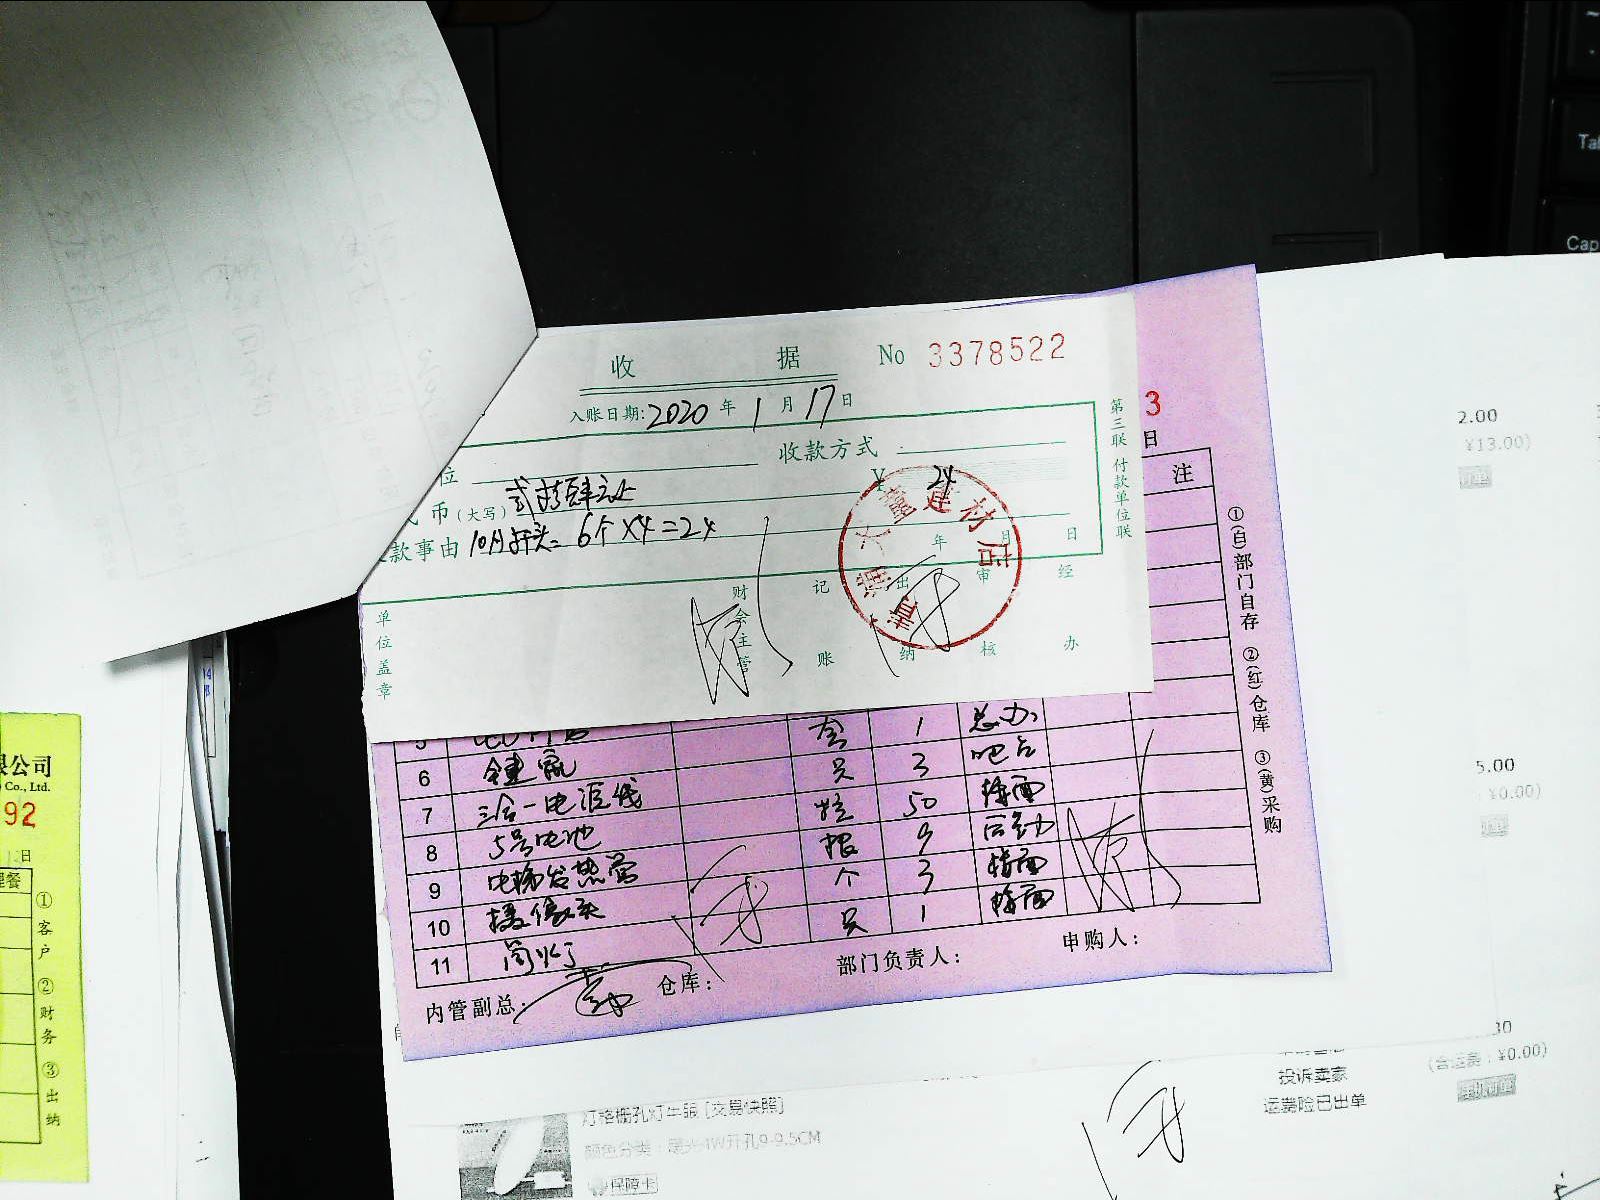 收 据 No 3378522
入账日期:2020年1月17日
位 收款方式
币(大写)贰拾肆元正 ¥ 24
款事由 10月开头= 6个×4=24
年 月 日
第三联 付款单位联
单位盖章
财会主管
记账
出纳
审核
经办
青浦大童建材店
3
日
注
①(自)部门自存 ②(红)仓库 ③(黄)采购
5 套 1 总办
6 键鼠 只 3 吧台
7 三合一电源线 50
8 5号电池 根 9
9 电梯发热管 个 3
10 摄像头 只 1
11 筒灯
内管副总: 仓库: 部门负责人: 申购人:
限公司
Co., Ltd.
92
日
餐
①客户 ②财务 ③出纳
2.00
(¥13.00)
5.00
¥0.00)
30
(含运费:¥0.00)
投诉卖家
运费险已出单
灯格栅孔灯牛眼 [交易快照]
颜色分类:暖光4W开孔9-9.5CM
保障卡
Tab
Cap